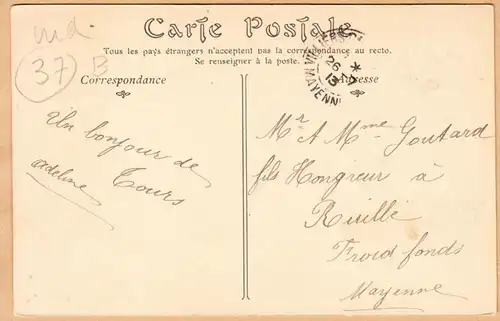 nd
37
B
Carte Postale
Tous les pays étrangers n'acceptent pas la correspondance au recto.
Se renseigner à la poste.
Correspondance
Adresse
26
13
MAYENNE
Un bonjour de
Tours
adeline
Mr & Mme Goutard
fils Hongreur à
Ruillé
Froid fonds
Mayenne